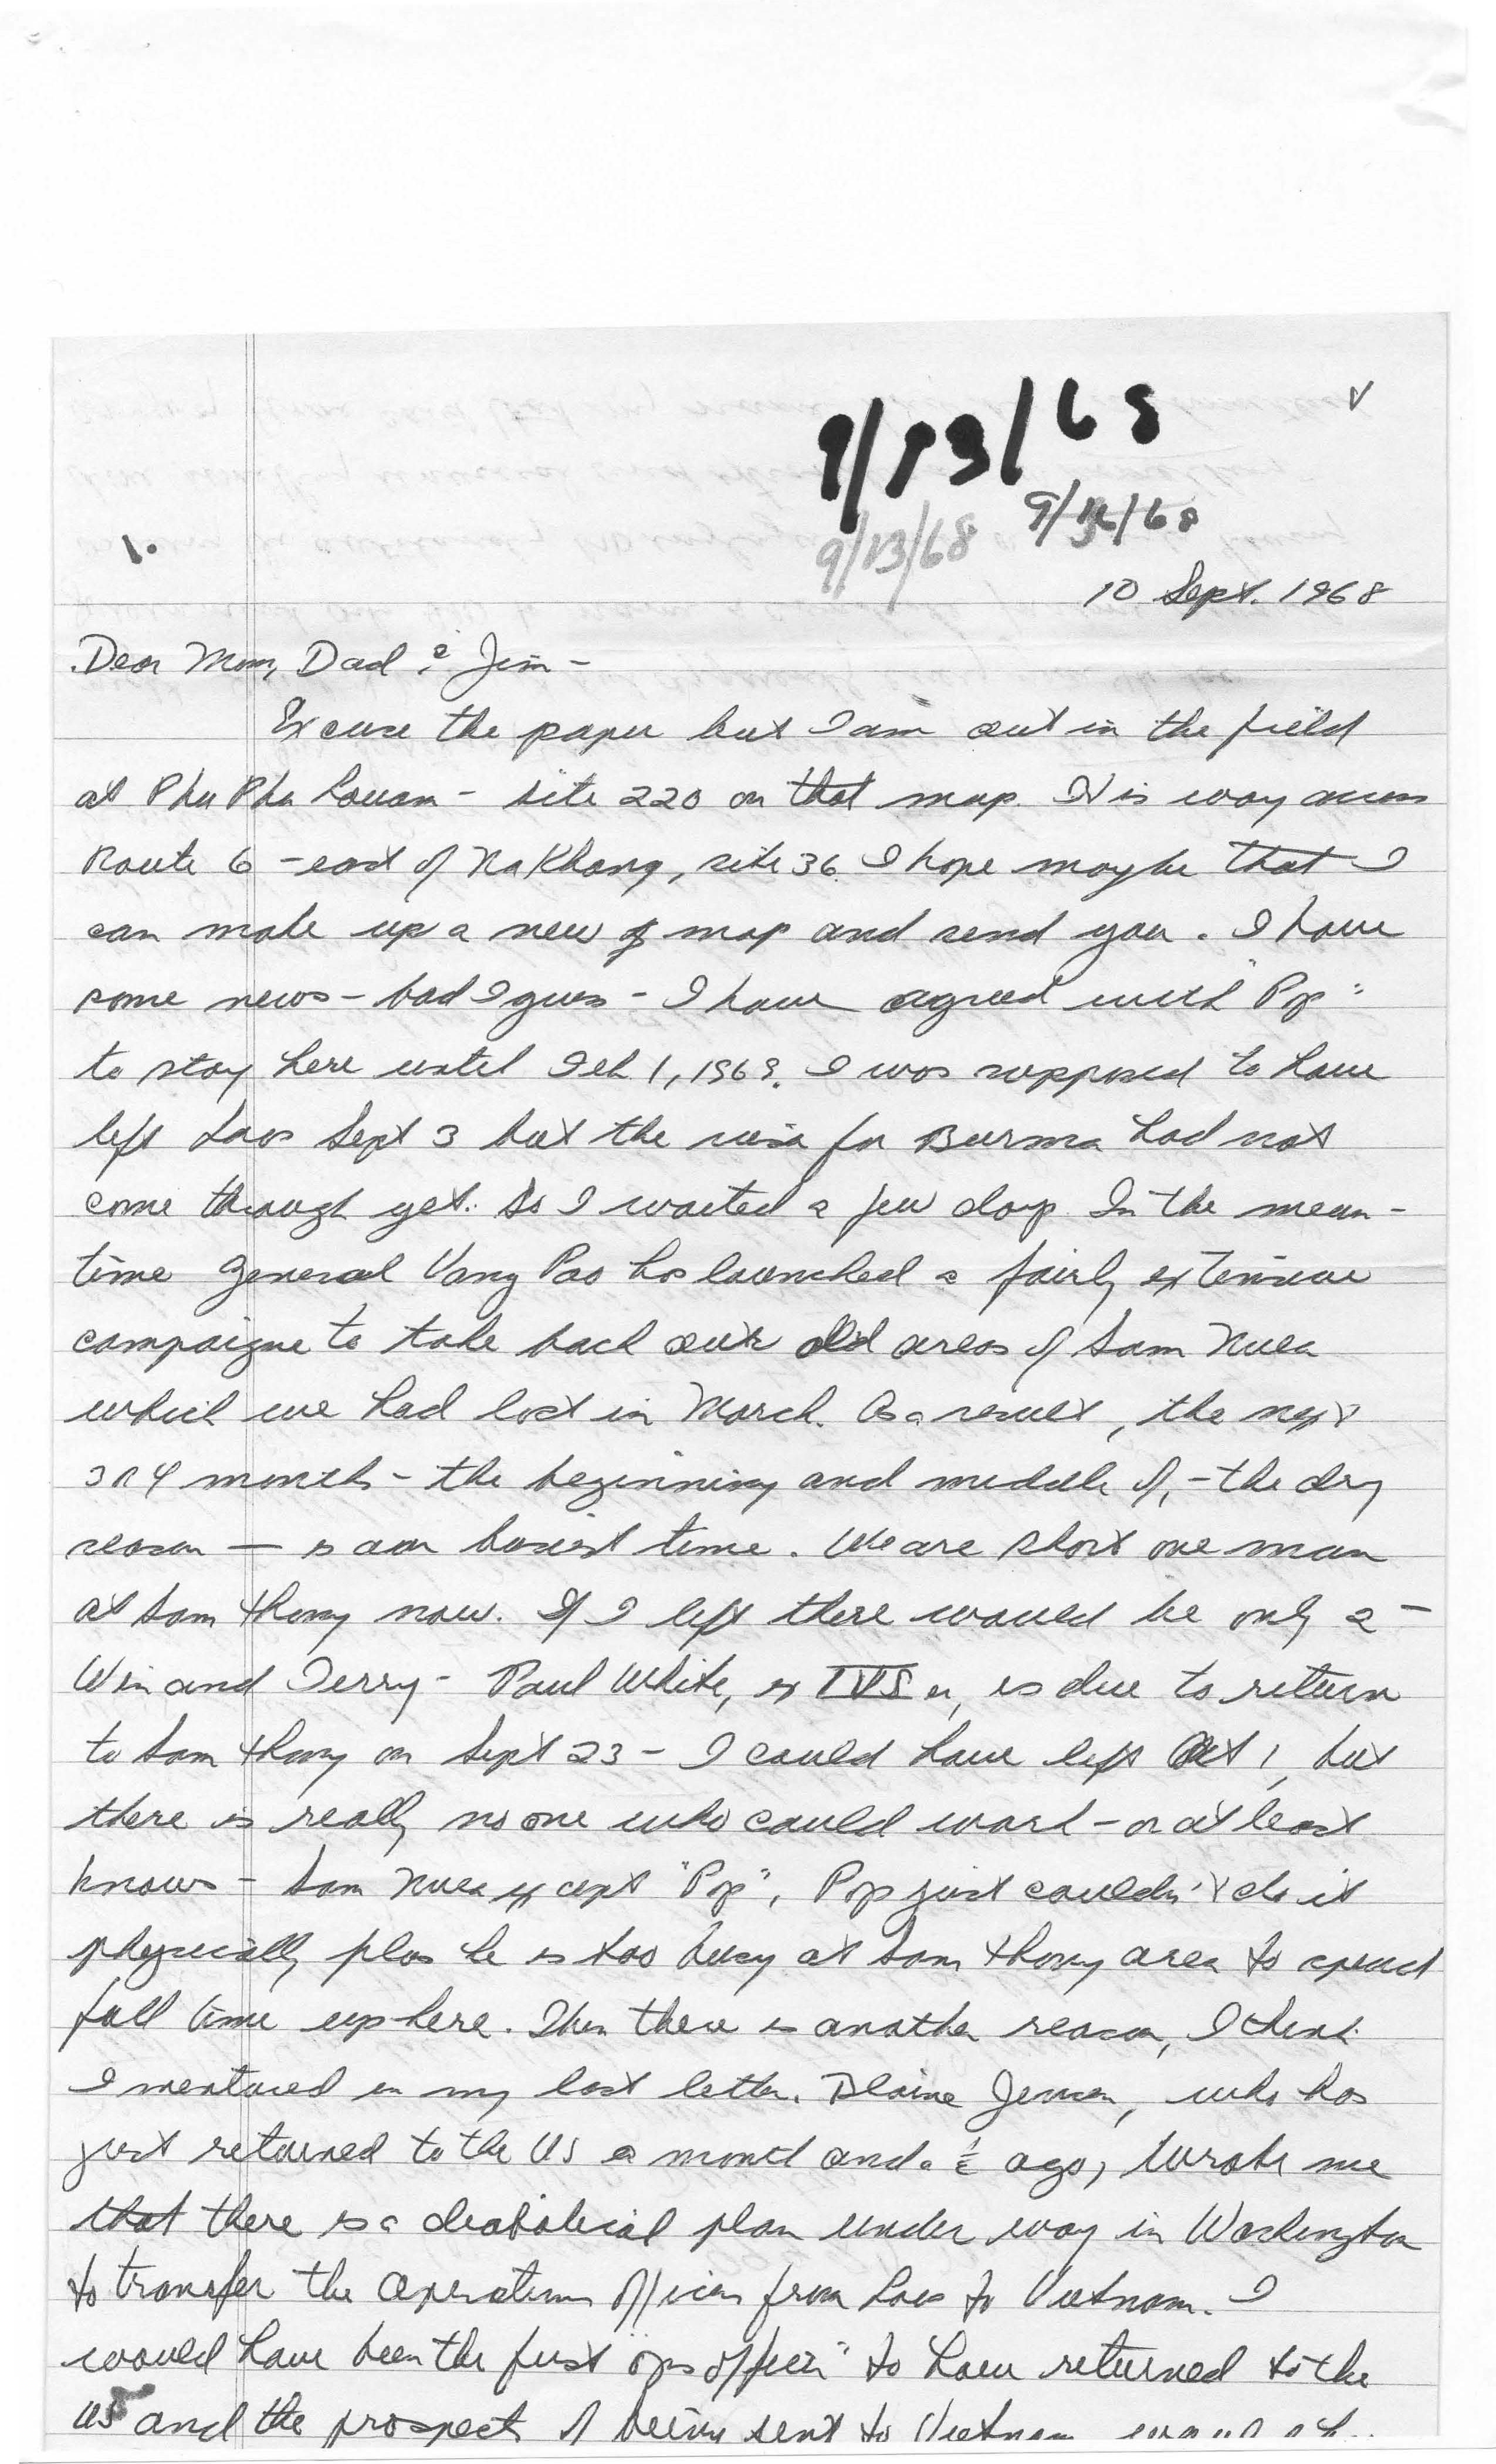 9/13/68
9/13/68 9/14/68
1.
10 Sept. 1968
Dear Mom, Dad & Jim -
Excuse the paper but I am out in the field
at Phu Pha Louam - site 220 on that map. It is way across
Route 6 - east of Na Khang, site 36. I hope maybe that I
can make up a new map and send you. I have
some news - bad I guess - I have agreed with "Pop"
to stay here until Feb. 1, 1969. I was supposed to have
left Laos Sept 3 but the visa for Burma had not
come through yet. So I waited a few days. In the mean-
time General Vang Pao has launched a fairly extensive
campaigne to take back our old areas of Sam Nuea
which we had lost in March. As a result, the next
3 or 4 months - the beginning and middle of, - the dry
season — is our busiest time. We are short one man
at Sam Thong now. If I left there would be only 2 -
Win and Jerry - Paul White, ex IVSer, is due to return
to Sam Thong on Sept 23 - I could have left Oct 1, but
there is really no one who could work - or at least
knows - Sam Nuea except "Pop", Pop just couldn't do it
physically plus he is too busy at Sam Thong area to spend
full time up here. Then there is another reason, I think
I mentioned in my last letter. Blaine Jensen, who has
just returned to the US a month and a ½ ago, wrote me
that there is a diabolical plan under way in Washington
to transfer the operations officers from Laos to Vietnam. I
would have been the first "ops officer" to have returned to the
US and the prospect of being sent to Vietnam